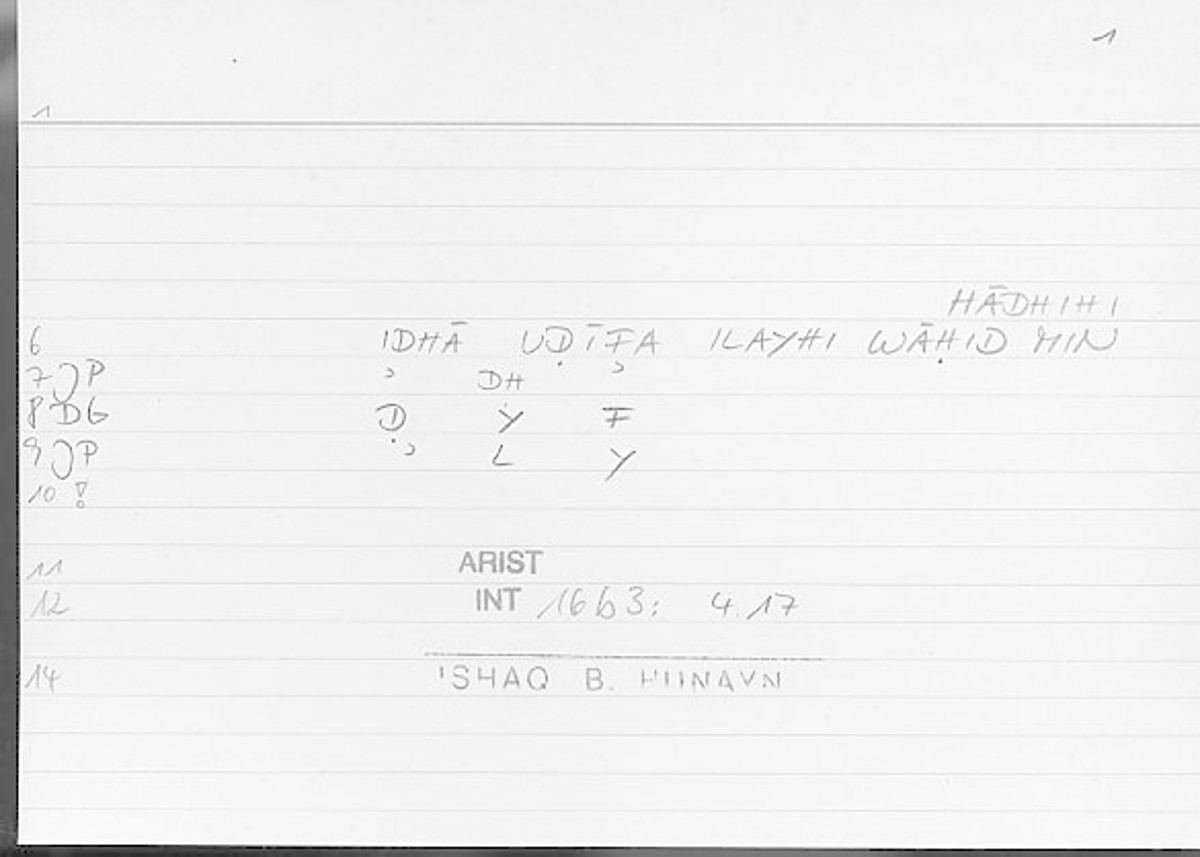 1
1
HĀDHIHI
6 IDHĀ UḌĪFA ILAYHI WĀḤID MIN
7 JP ʾ DH ʾ
8 DG Ḍ Y F
9 JP ʾ L Y
10 !
11 ARIST
12 INT 16b3: 4.17
14 ISHAQ B. HUNAYN